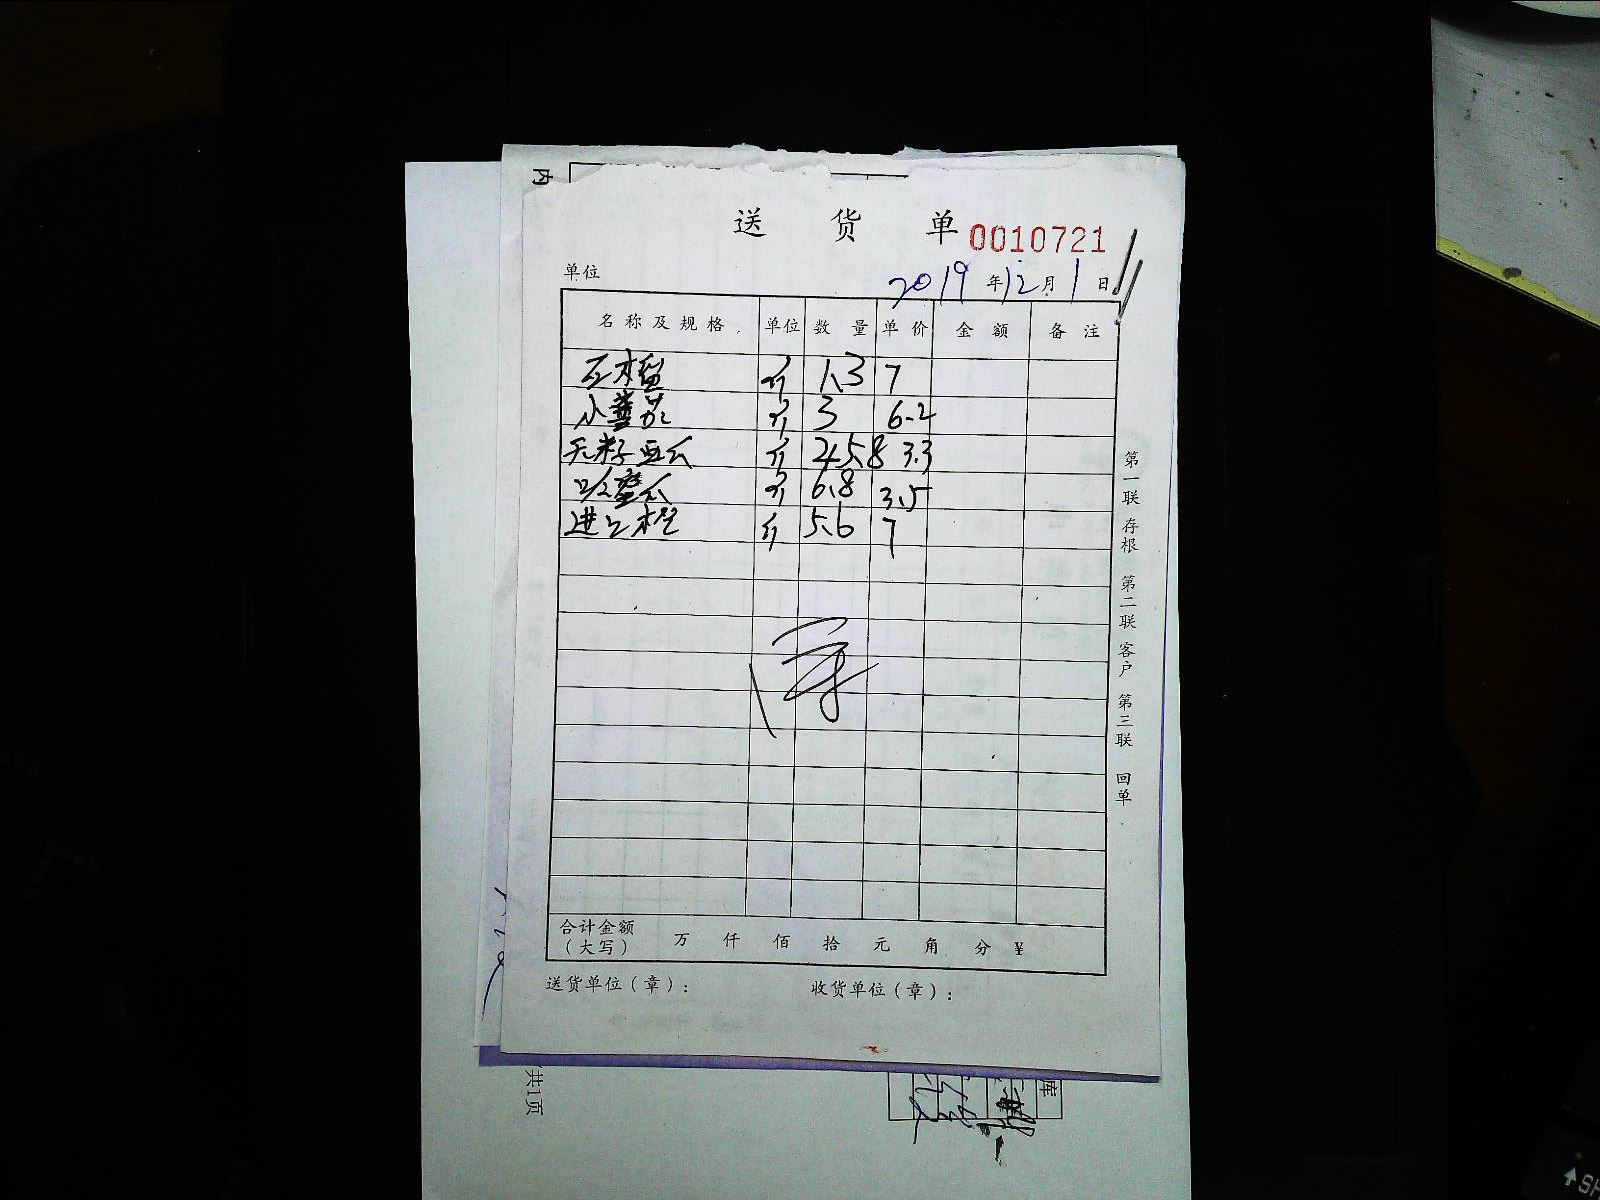 内
送 货 单 0010721
单位
2019年12月1日
名称及规格 单位 数量 单价 金额 备注
石榴 斤 1.3 7
小番茄 斤 3 6.2
无籽西瓜 斤 45.8 3.3
哈蜜瓜 斤 6.8 3.5
进口橙 斤 5.6 7
第一联 存根 第二联 客户 第三联 回单
合计金额（大写） 万 仟 佰 拾 元 角 分 ¥
送货单位（章）： 收货单位（章）：
共1页
库